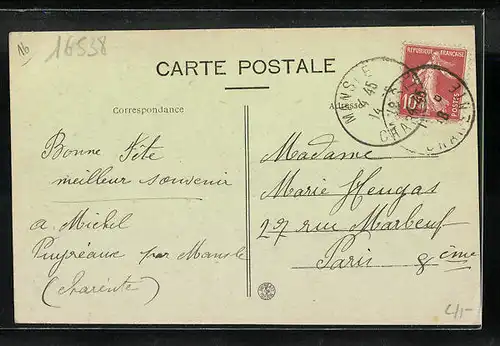 16
16538
CARTE POSTALE
Correspondance
Adresse
REPUBLIQUE FRANÇAISE
10
POSTES
MANSLE
14 45
CHARENTE
Bonne Fête
meilleur souvenir
a. Michel
Puyréaux par Mansle
(Charente)
Madame
Marie Heugas
27 rue Marbeuf
Paris 8ème
4/-